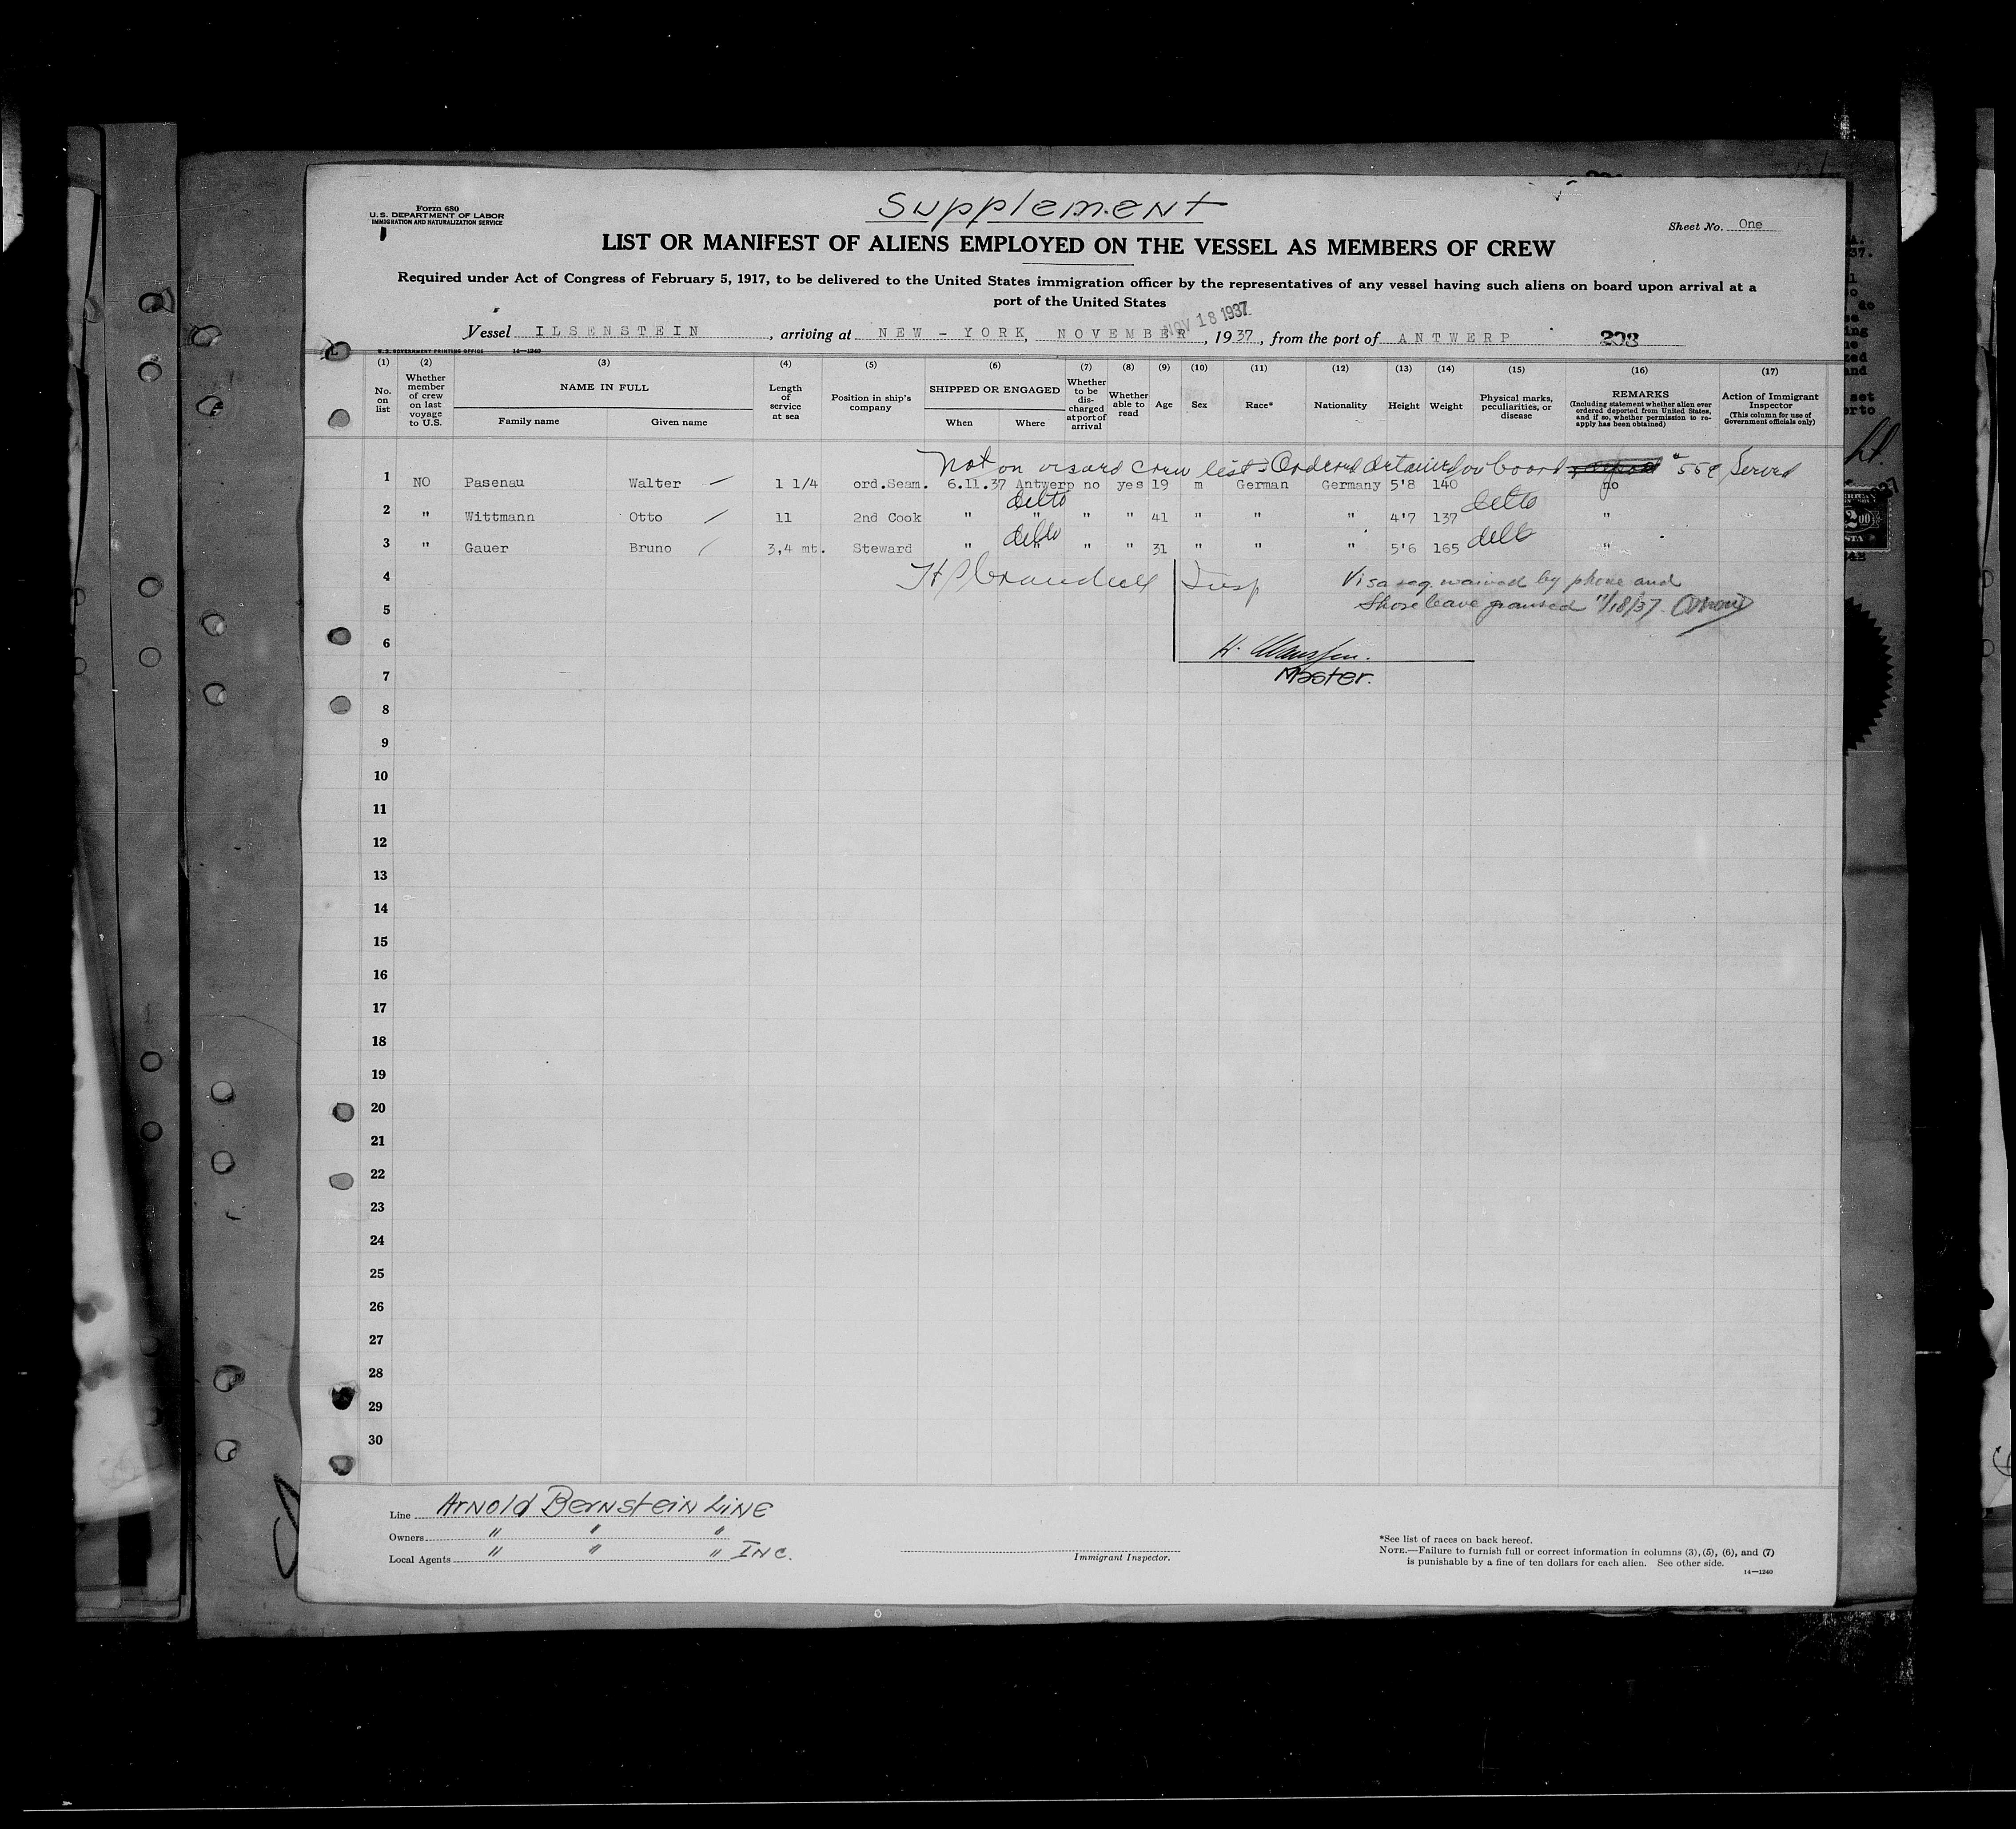 Supplement
Form 680
U.S. DEPARTMENT OF LABOR
IMMIGRATION AND NATURALIZATION SERVICE
Sheet No. One
LIST OR MANIFEST OF ALIENS EMPLOYED ON THE VESSEL AS MEMBERS OF CREW
Required under Act of Congress of February 5, 1917, to be delivered to the United States immigration officer by the representatives of any vessel having such aliens on board upon arrival at a
port of the United States
NOV 18 1937
Vessel ILSENSTEIN, arriving at NEW-YORK, NOVEMBER, 1937, from the port of ANTWERP 203
U.S. GOVERNMENT PRINTING OFFICE 14—1240
(1) No. on list
(2) Whether member of crew on last voyage to U.S.
(3) NAME IN FULL Family name Given name
(4) Length of service at sea
(5) Position in ship's company
(6) SHIPPED OR ENGAGED When Where
(7) Whether to be discharged at port of arrival
(8) Whether able to read
(9) Age
(10) Sex
(11) Race*
(12) Nationality
(13) Height
(14) Weight
(15) Physical marks, peculiarities, or disease
(16) REMARKS (Including statement whether alien ever ordered deported from United States, and if so, whether permission to re-apply has been obtained)
(17) Action of Immigrant Inspector (This column for use of Government officials only)
Not on visaed crew list: Ordered detained on board #559 Served
1 NO Pasenau Walter 1 1/4 ord.Seam. 6.11.37 Antwerp no yes 19 m German Germany 5'8 140 no
ditto ditto
2 " Wittmann Otto 11 2nd Cook " " " " 41 " " " 4'7 137 "
ditto ditto
3 " Gauer Bruno 3,4 mt. Steward " " " " 31 " " " 5'6 165 "
4 Insp Visa req. waived by phone and
5 Shore leave granted 11/18/37
6 H.
7 Master.
8
9
10
11
12
13
14
15
16
17
18
19
20
21
22
23
24
25
26
27
28
29
30
Line Arnold Bernstein Line
Owners " " "
Local Agents " " " Inc.
Immigrant Inspector.
*See list of races on back hereof.
NOTE.—Failure to furnish full or correct information in columns (3), (5), (6), and (7)
is punishable by a fine of ten dollars for each alien. See other side.
14—1240